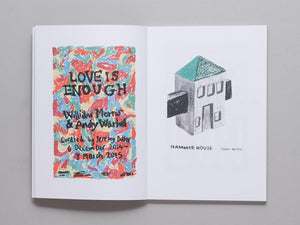 LOVE IS
ENOUGH
William Morris
& Andy Warhol
Curated by Jeremy Deller
6 December 2014 –
8 March 2015
HAMMER HOUSE